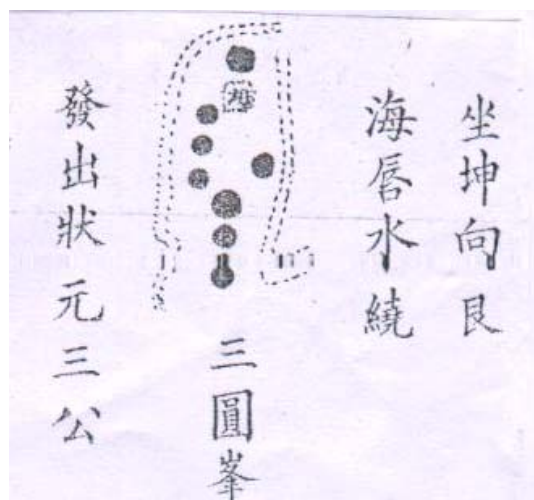 坐坤向艮
海唇水繞
三圓峯
發出狀元三公